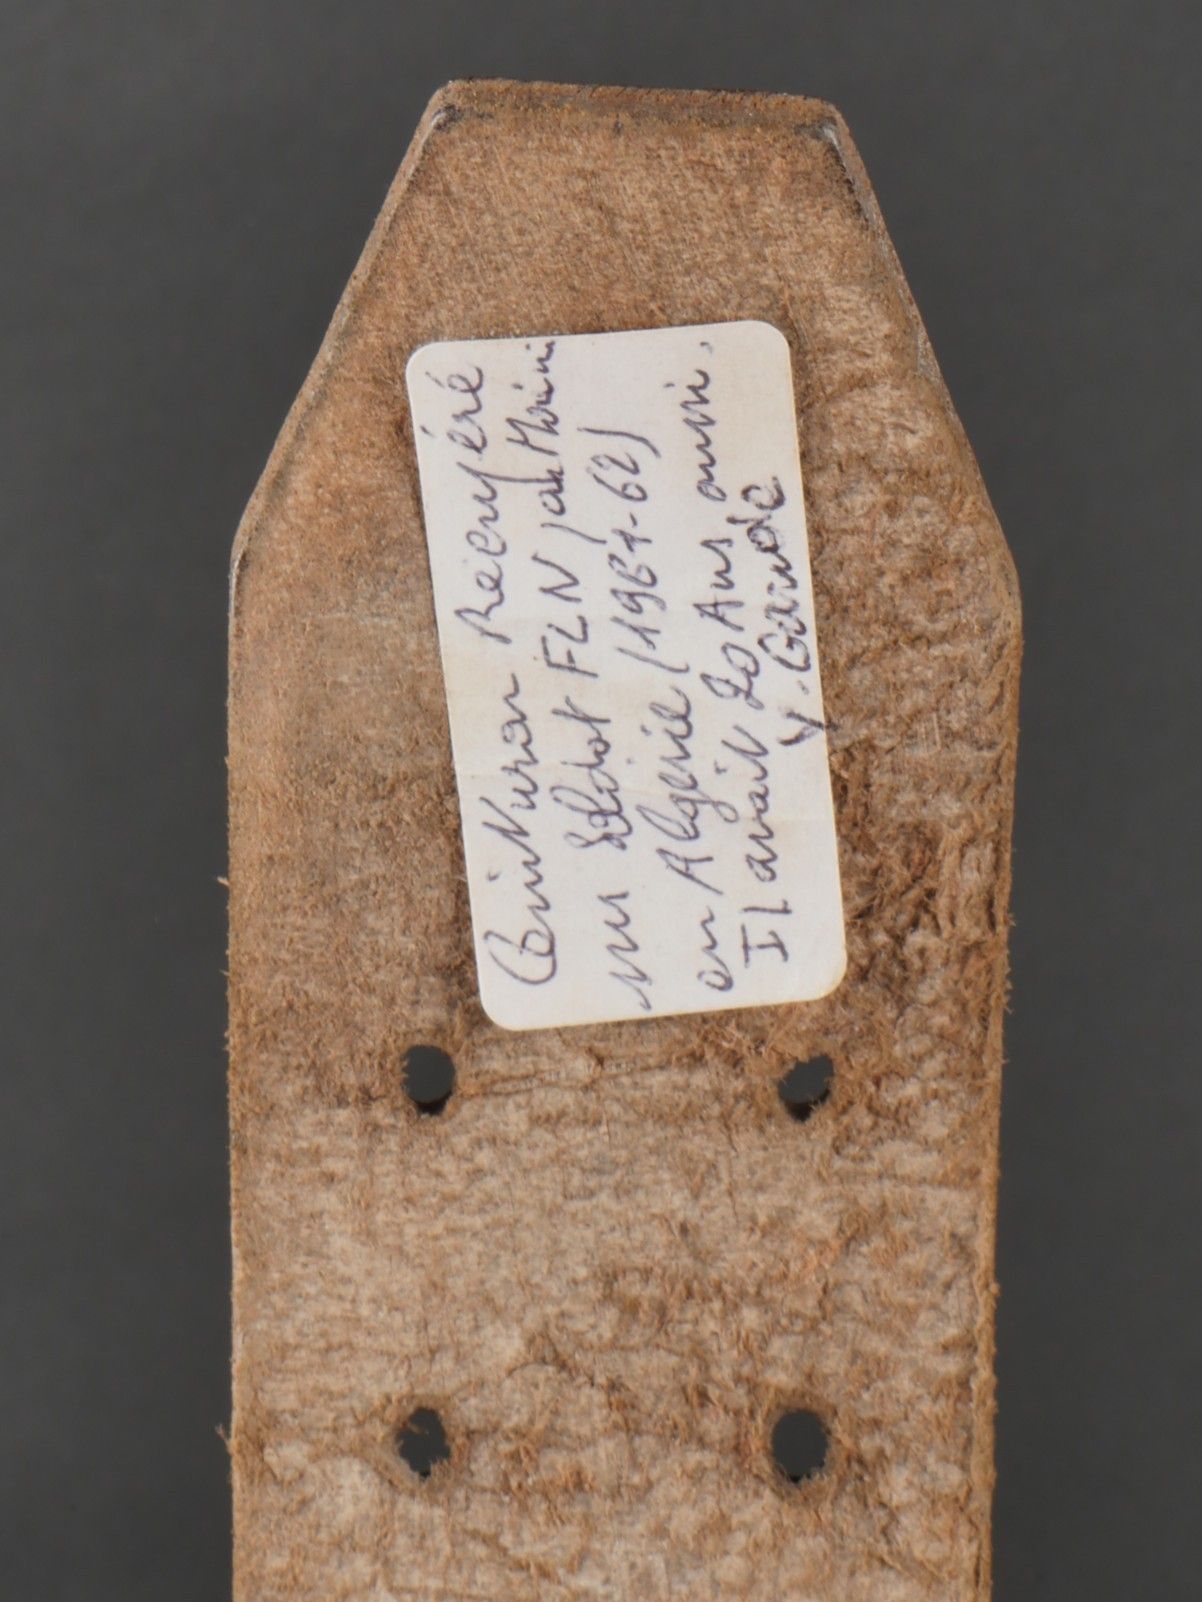 Ceinturon Récupéré
sur Soldat FLN
en Algérie (1961-62)
Il avait 20 Ans aussi.
Y.